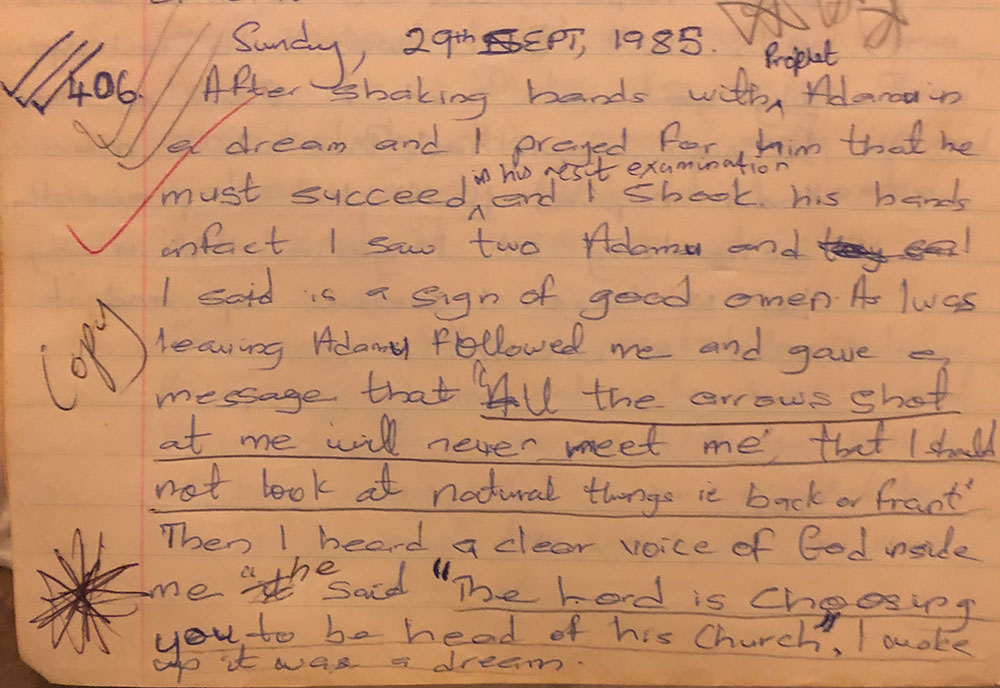 Sunday, 29th SEPT, 1985.
Prophet
406. After shaking hands with Adamu in
a dream and I prayed for him that he
in his resit examination
must succeed and I shook his hands
infact I saw two Adamu and
I said is a sign of good omen. As I was
leaving Adamu followed me and gave a
Copy
message that "All the arrows shot
at me will never meet me, that I should
not look at natural things ie back or front"
Then I heard a clear voice of God inside
me he said "The Lord is choosing
you to be head of his Church", I woke
up it was a dream.